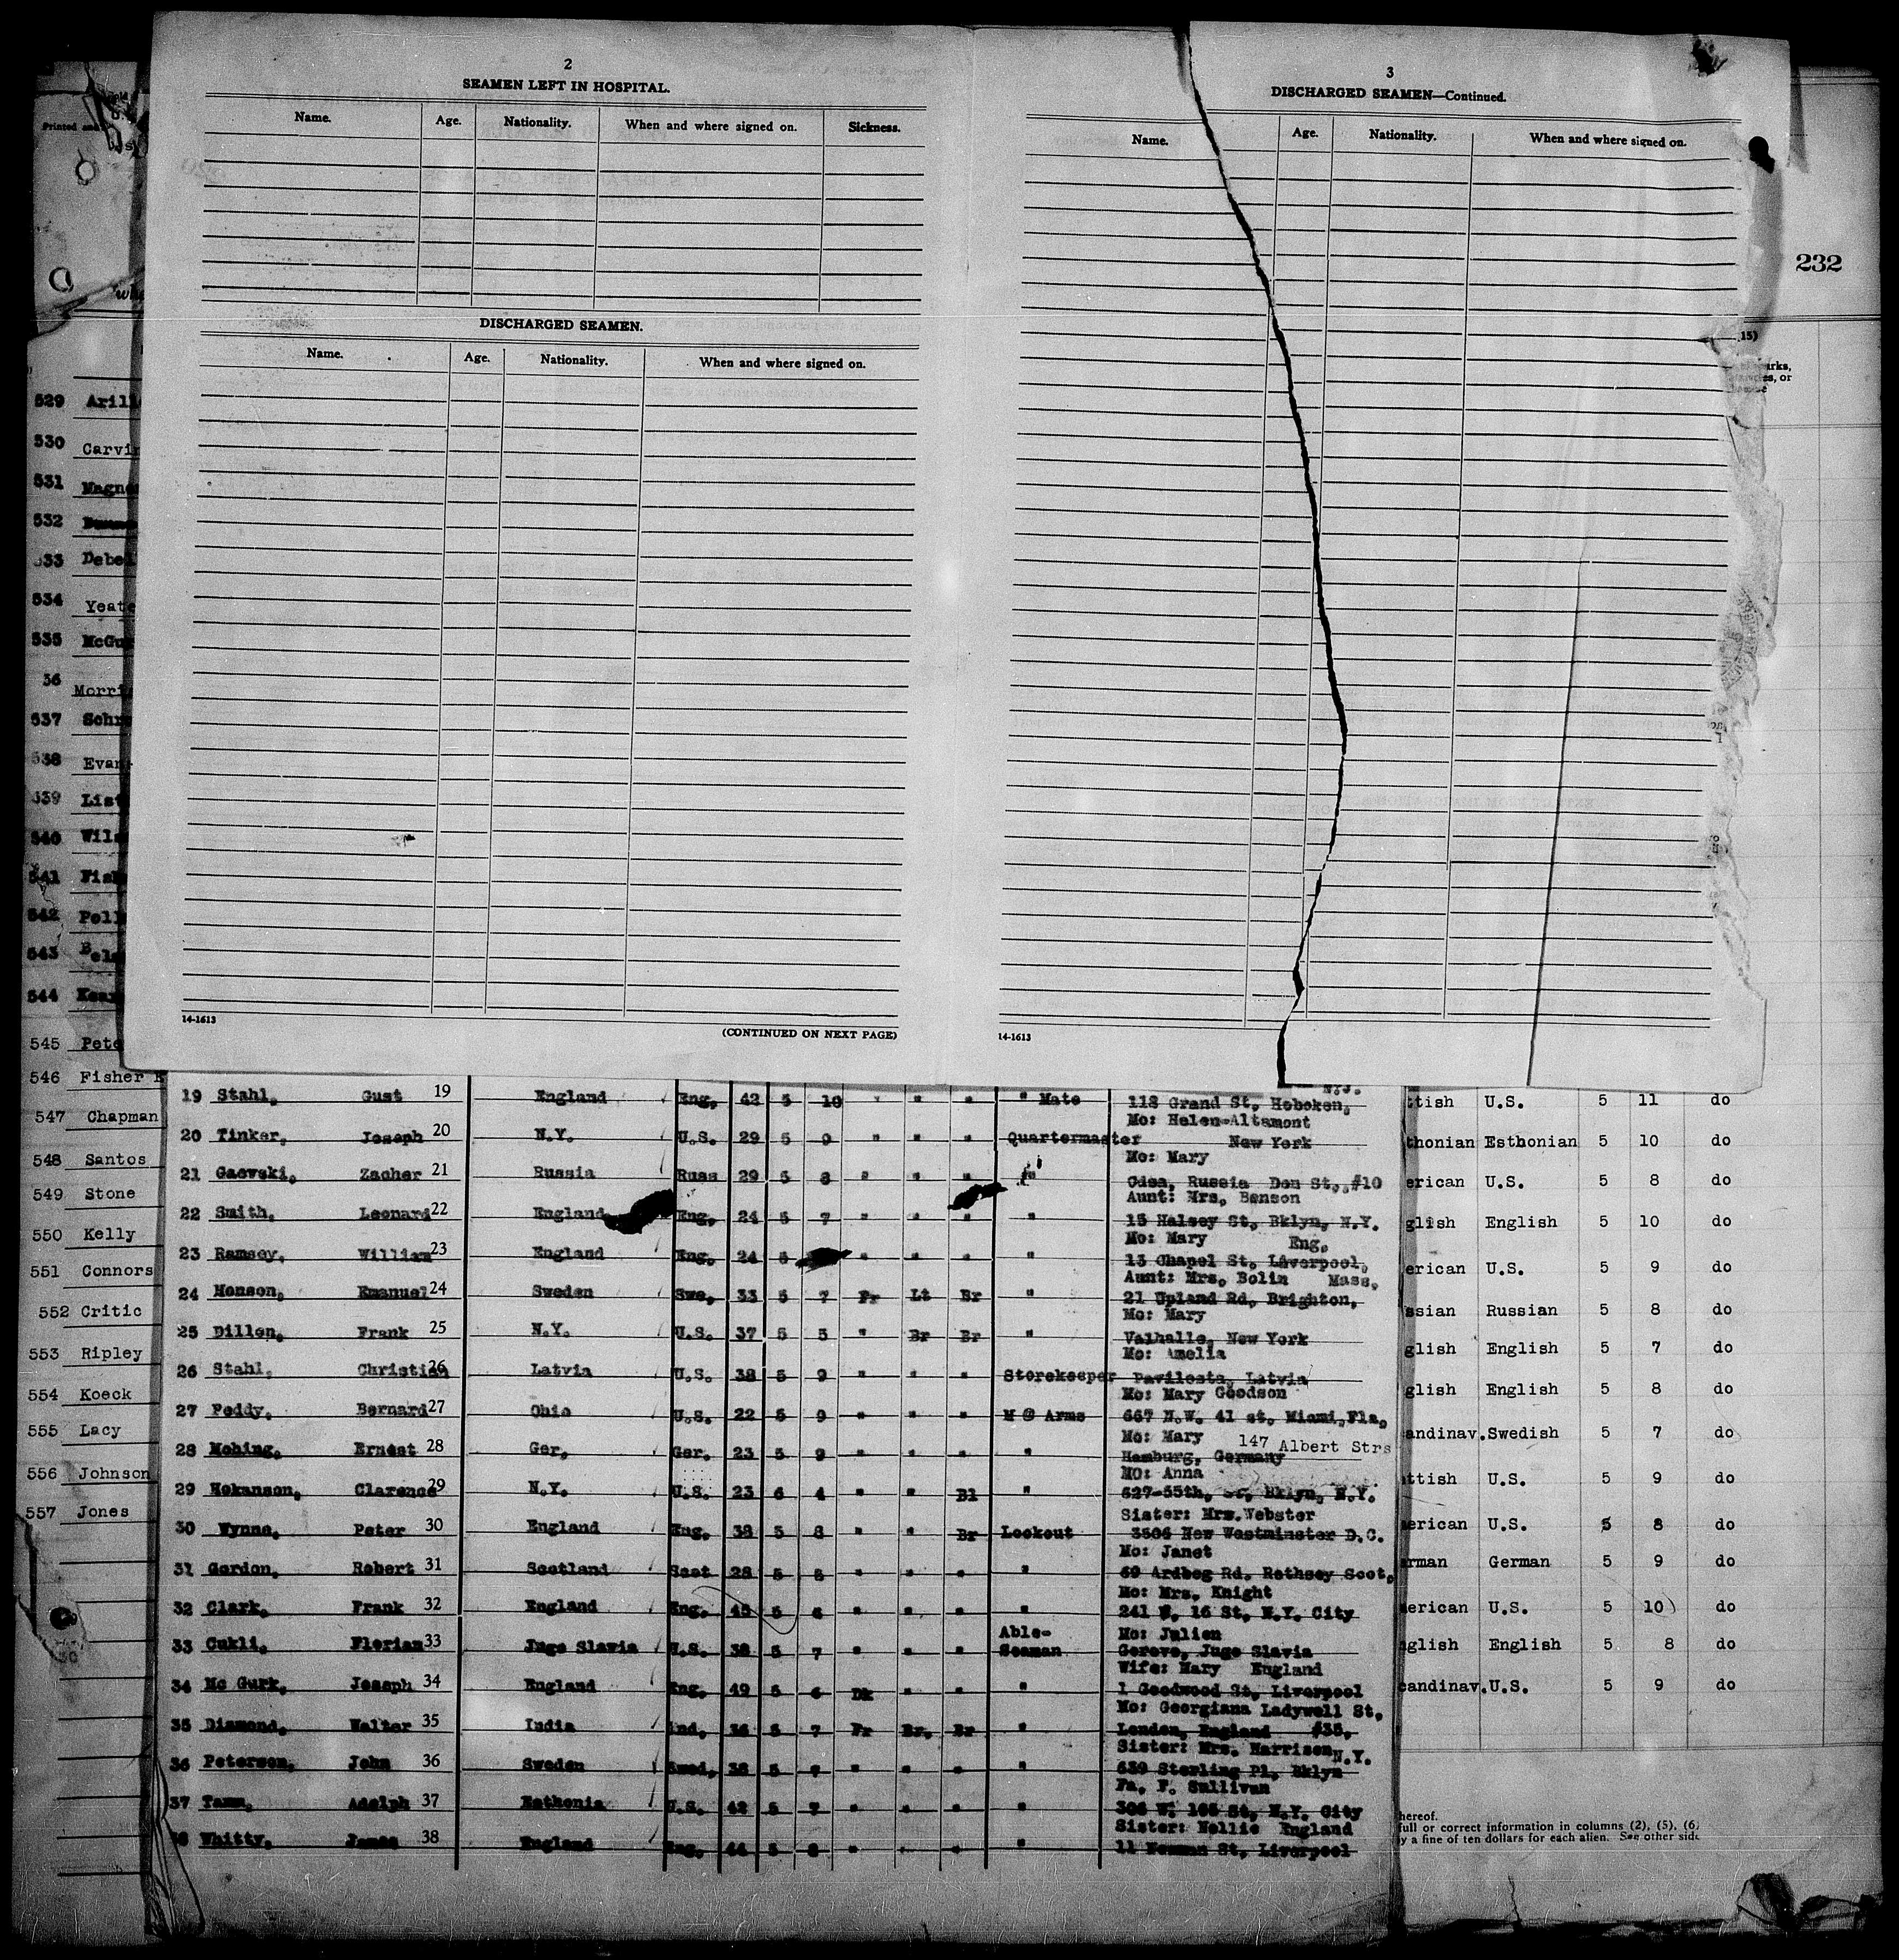 2
SEAMEN LEFT IN HOSPITAL.
Name. Age. Nationality. When and where signed on. Sickness.
DISCHARGED SEAMEN.
Name. Age. Nationality. When and where signed on.
14-1613
(CONTINUED ON NEXT PAGE)
3
DISCHARGED SEAMEN—Continued.
Name. Age. Nationality. When and where signed on.
14-1613
232
15)
arks,
es, or
Printed and
529 Aril
530 Carvi
531 Magn
532
533 Debe
534 Yeate
535 McGu
36 Morri
537 Schr
538 Evan
539 List
540 Wils
541 Fish
542 Pell
543 Bels
544 Kear
545 Pete
546 Fisher E
547 Chapman
548 Santos
549 Stone
550 Kelly
551 Connors
552 Critic
553 Ripley
554 Koeck
555 Lacy
556 Johnson
557 Jones
N.J.
19 Stahl, Gust 19 England Eng. 42 5 10 " " " " Mate 118 Grand St, Hoboken,
Mo: Helen-Altamont
20 Tinker, Joseph 20 N.Y. U.S. 29 5 9 " " " Quartermaster New York
Mo: Mary
21 Gaevski, Zacher 21 Russia Russ 29 5 8 " " " " Odsa, Russia Don St, #10
Aunt: Mrs, Benson
22 Smith, Leonard 22 England Eng. 24 5 7 " " " " 15 Halsey St, Bklyn, N.Y.
Mo: Mary Eng,
23 Ramsey, William 23 England Eng. 24 5 " " " " 13 Chapel St, Liverpool,
Aunt: Mrs, Bolin Mass,
24 Monson, Emanuel 24 Sweden Swe, 33 5 7 Fr Lt Br " 21 Upland Rd, Brighton,
Mo: Mary
25 Dillen, Frank 25 N.Y. U.S. 37 5 5 " Br Br " Valhalla, New York
Mo: Amelia
26 Stahl, Christian 26 Latvia U.S. 38 5 9 " " " Storekeeper Pavilosta, Latvia
Mo: Mary Goodson
27 Peddy, Bernard 27 Ohio U.S. 22 5 9 " " " M @ Arms 667 N.W. 41 st, Miami,Fla,
Mo: Mary 147 Albert Strs
28 Mohing, Ernest 28 Ger, Ger. 23 5 9 " " " " Hamburg, Germany
MO: Anna
29 Hokanson, Clarence 29 N.Y. U.S. 23 6 4 " " Bl " 627-55th, St, Bklyn, N.Y.
Sister: Mrs.Webster
30 Wynne, Peter 30 England Eng. 38 5 8 " " Br Lookout 3506 New Westminster D.C.
Mo: Janet
31 Gordon, Robert 31 Scotland Scot 28 5 8 " " " " 69 Ardbeg Rd, Rothsey Scot,
Mo: Mrs, Knight
32 Clark, Frank 32 England Eng. 45 5 6 " " " " 241 W, 16 St, N.Y. City
Able- Mo: Julien
33 Cukli, Florian 33 Jugo Slavia U.S. 38 5 7 " " " Seaman Gerovo, Jugo Slavia
Wife: Mary England
34 Mc Gurk, Joseph 34 England Eng. 49 5 6 Dk " " " 1 Goodwood St, Liverpool
Mo: Georgiana Ladywell St,
35 Diamond, Walter 35 India Ind. 36 5 7 Fr Br, Br " London, England #35,
Sister: Mrs. Harrison N.Y.
36 Peterson, John 36 Sweden Swed, 38 5 7 " " " " 639 Sterling Pl, Bklyn
Fa, F. Sullivan
37 Tamm, Adolph 37 Esthonia U.S. 42 5 7 " " " " 306 W. 105 St, N.Y. City
Sister: Nellie England
38 Whitty, James 38 England Eng. 44 5 8 " " " " 11 Newman St, Liverpool
ttish U.S. 5 11 do
thonian Esthonian 5 10 do
erican U.S. 5 8 do
glish English 5 10 do
erican U.S. 5 9 do
ssian Russian 5 8 do
glish English 5 7 do
glish English 5 8 do
andinav. Swedish 5 7 do
ttish U.S. 5 9 do
erican U.S. 5 8 do
rman German 5 9 do
erican U.S. 5 10 do
glish English 5 8 do
candinav. U.S. 5 9 do
hereof.
full or correct information in columns (2), (5), (6)
y a fine of ten dollars for each alien. See other side